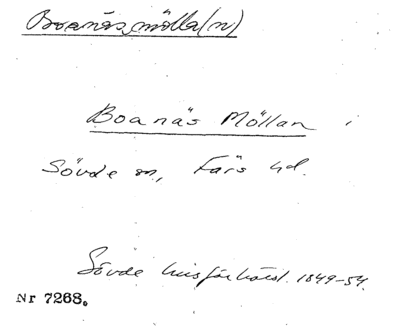 Boanäs mölla(n)
Boanäs Möllan i
Sövde sn, Färs hd.
Sövde husförhörsl. 1849-54.
Nr 7268.